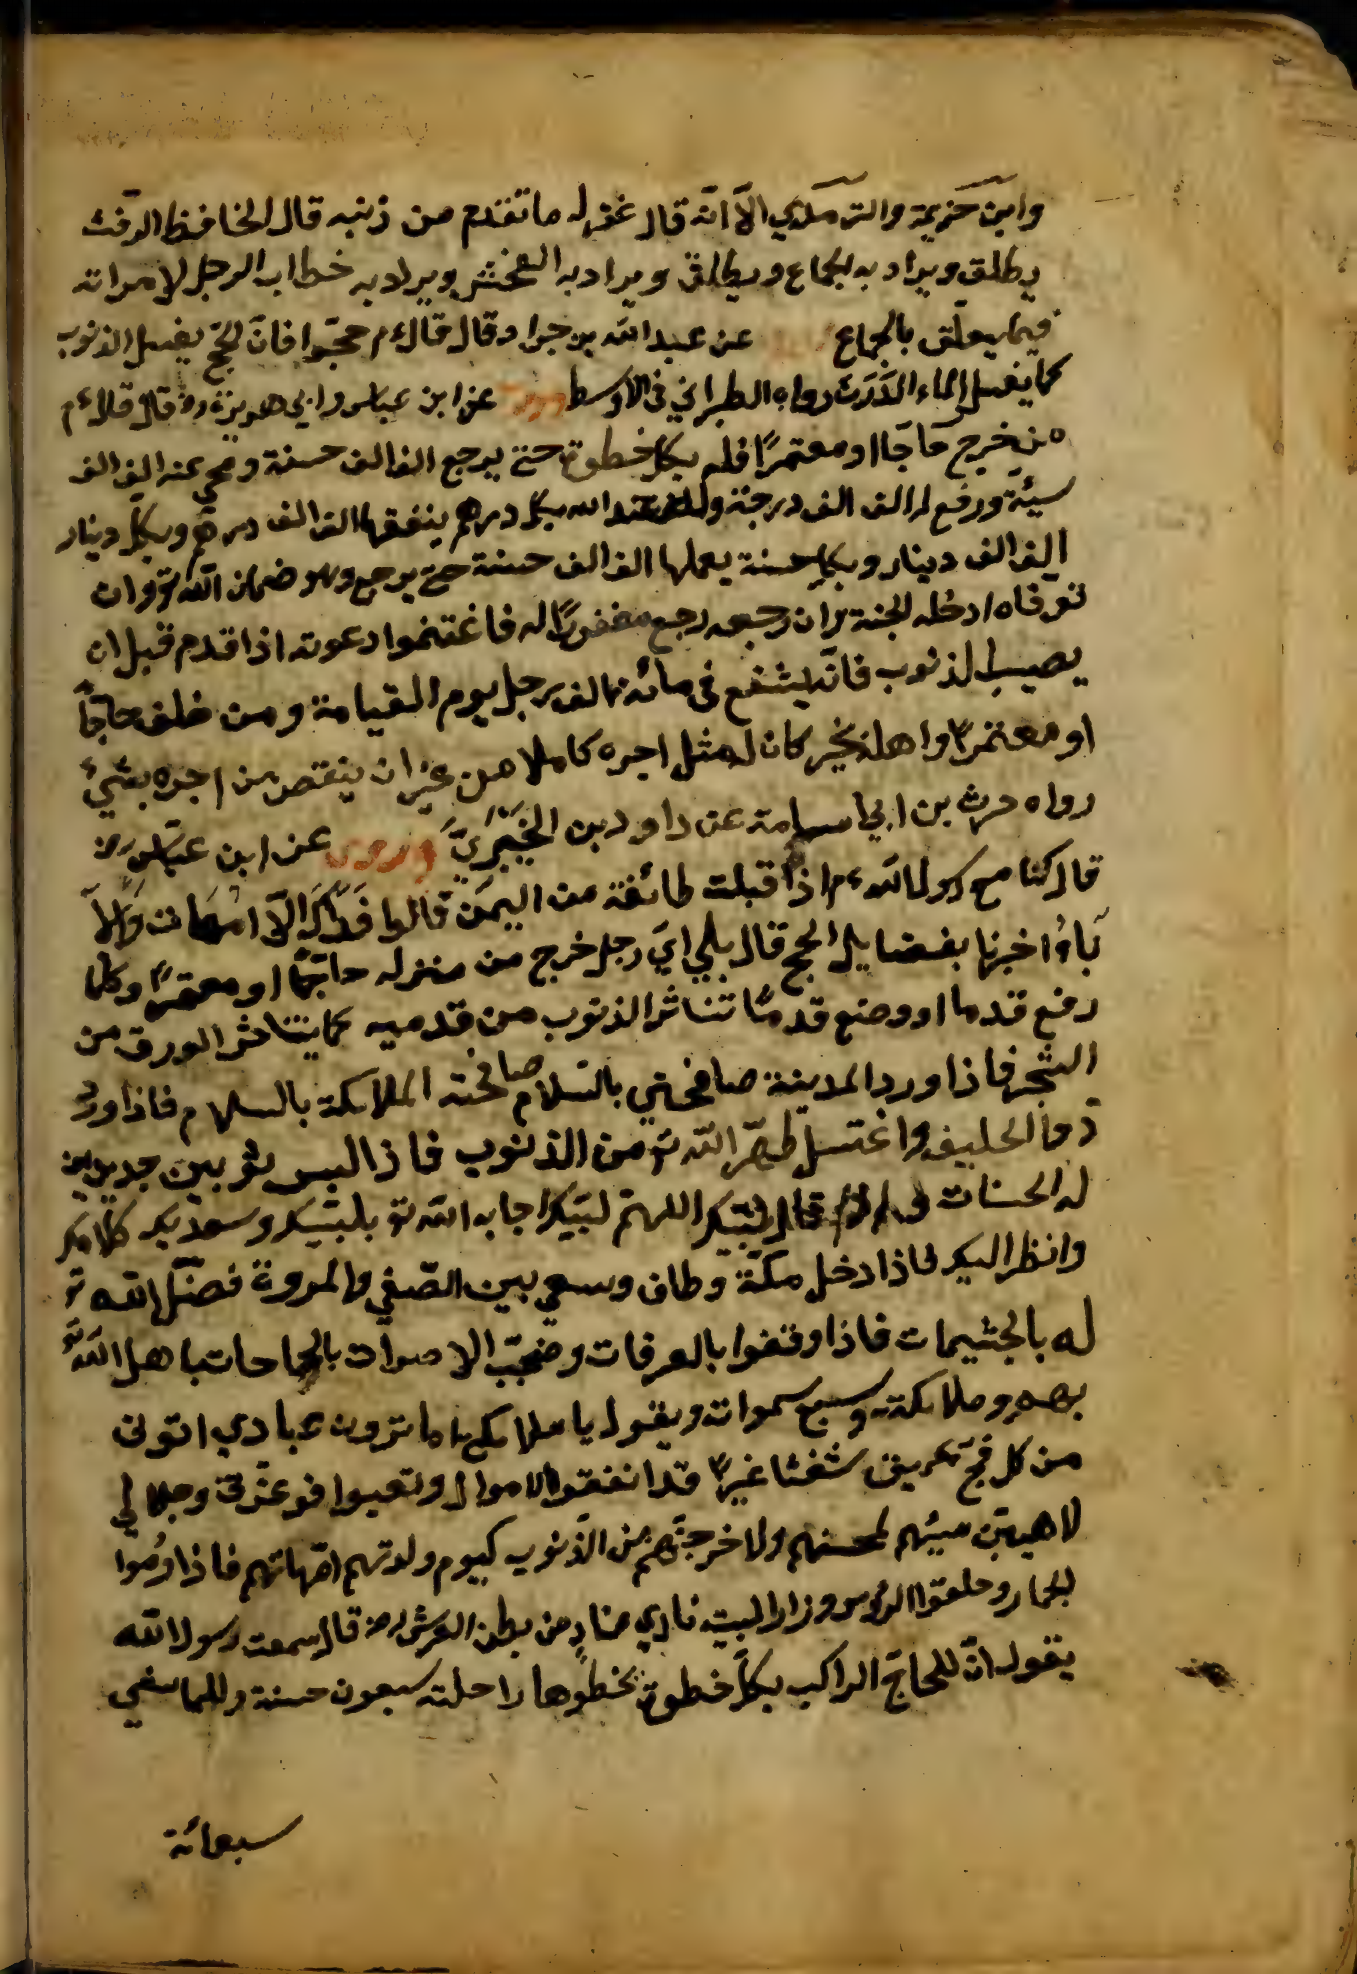 وابن خزيمة والترمذي الا انّه قال غفر له ما تقدم من ذنبه قال الحافظ الرّفث
يطلق ويراد به الجماع ويطلق ويراد به الفحش ويراد به خطاب الرجل لامراته
فيما يعلّق بالجماع عن عبد الله بن جراد قال قال ءم حجّوا فانّ الحجّ يغسل الذنوب
كما يغسل الماء الدّرن رواه الطبراني في الاوسط عن ابن عباس وابي هريرة رض قال قال ءم
من خرج حاجّا او معتمرًا فله بكل خطوة حتى يرجع الف الف حسنة ومحي عنه الف الف
سيئة ورفع له الف الف درجة وله عند الله بكل درهم ينفقها الف الف درهم وبكل دينار
الف الف دينار وبكل حسنة يعملها الف الف حسنة حتى يرجع وهو ضمان الله تع وان
توفاه ادخله الجنة وان رجعه رجع مغفورًا له فاغتنموا دعوته اذا قدم قبل ان
يصيب الذنوب فانّه يشفع في مائة الف رجل يوم القيامة ومن خلف حاجًّا
او معتمرًا واهله بخير كان له مثل اجره كاملا من غير ان ينقص من اجره بشيء
رواه حرث بن ابي اسامة عن داود بن وروى عن ابن عبّاس رض
قال كنا مع رسول الله ءم اذا قبلت طائفة من اليمن قالوا فداك الامهات والا
بآؤ اخبرنا بفضايل الحج قال بلي ايّ رجل خرج من منزله حاجًّا او معتمرًا وكلما
رفع قدما او وضع قدمًا تناثر الذنوب من قدميه كما يتناثر الورق من
الشجر فاذا ورد المدينة صافحني بالسّلام صافحته الملائكة بالسلام فاذا ورد
ذا الحليفه واغتسل طهّر الله تع من الذنوب فاذا لبس ثوبين جديدين
له الحسنات قال لبّيك اللهمّ لبّيك اجابه الله تع بلبّيك وسعديك كلامك
وانظر اليك فاذا دخل مكّة وطاف وسعي بين الصّفي والمروة فصّل الله تع
له بالجثيمات فاذا وقفوا بالعرفات وضجّت الاصوات بالحاجات باهل الله تع
بهم وملائكة وسبع سموات ويقول يا ملائكتي اما ترون عبادي اتوني
من كل فجّ عميق شعثا غبرًا قد انفقوا الاموال وتعبوا فوعزّتي وجلالي
لاهبنّ مسيئهم لمحسنهم ولاخرجنّهم من الذّنوب كيوم ولدتهم امّهاتهم فاذا رموا
الجمار وحلقوا الرؤس وزاروا البيت نادي منادٍ من بطن العرش رض قال سمعت رسول الله
يقول انّ للحاجّ الراكب بكلّ خطوة تخطوها راحلته سبعون حسنة وللماشي
سبعمائة